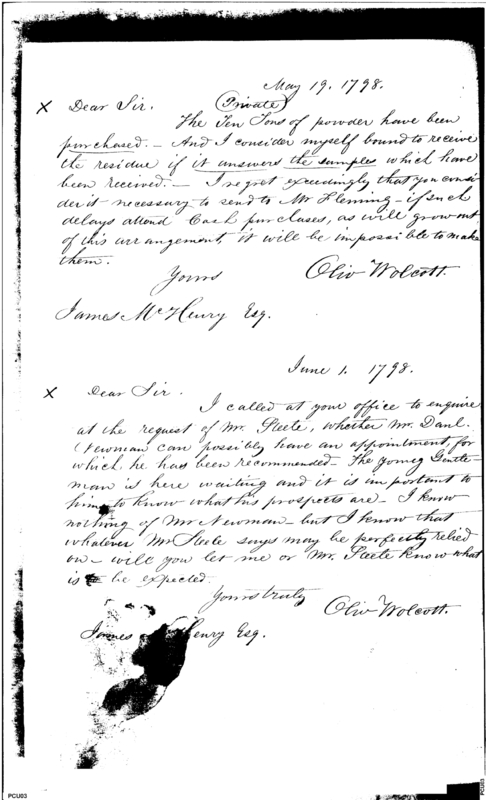 May 19. 1798.
X Dear Sir. (Private)
The Ten Tons of powder have been
purchased. – And I consider myself bound to receive
the residue if it answers the samples which have
been received. – I regret exceedingly that you consi-
der it necessary to send to Mr Fleming – if such
delays attend Cash purchases, as will grow out
of this arrangement, it will be impossible to make
them.
Yours
Oliv Wolcott.
James McHenry Esq.
June 1. 1798.
X Dear Sir.
I called at your office to enquire
at the request of Mr. Steele, whether Mr. Danl.
Newman can possibly have an appointment, for
which, he has been recommended – The young Gentle-
man is here waiting and it is important to
him to know what his prospects are – I know
nothing of Mr Newman – but I know that
whatever Mr Steele says may be perfectly relied
on – will you let me or Mr. Steele know what
is to be expected
Yours truly
Oliv Wolcott.
James Henry Esq.
PCU03
PCU03